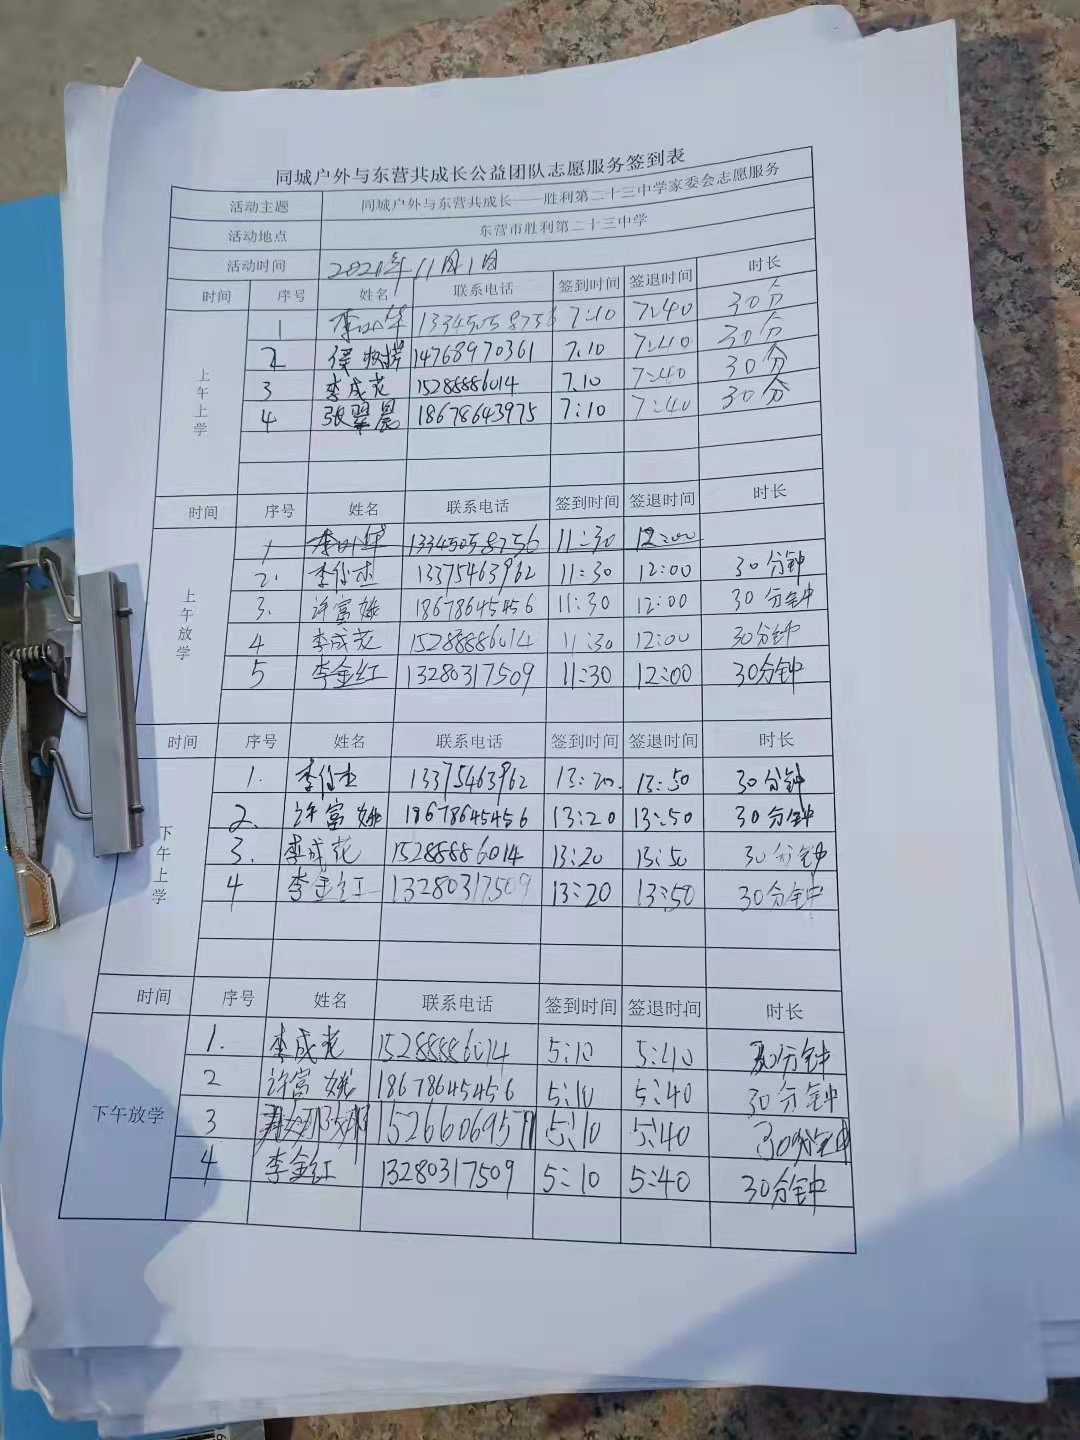 同城户外与东营共成长公益团队志愿服务签到表
活动主题 同城户外与东营共成长——胜利第二十三中学家委会志愿服务
活动地点 东营市胜利第二十三中学
活动时间 2021年11月1日
时间 序号 姓名 联系电话 签到时间 签退时间 时长
上午上学
1 李 华 13345058756 7:10 7:40 30分
2 侯 14768970361 7.10 7:40 30分
3 李成花 15288886014 7.10 7:40 30分
4 张翠晨 18678643975 7:10 7:40 30分
时间 序号 姓名 联系电话 签到时间 签退时间 时长
上午放学
1 李 华 13345058756 11:30 12:00
2. 李 杰 13375463962 11:30 12:00 30分钟
3. 许富娥 18678645456 11:30 12:00 30分钟
4 李成花 15288886014 11:30 12:00 30分钟
5 李金红 13280317509 11:30 12:00 30分钟
时间 序号 姓名 联系电话 签到时间 签退时间 时长
下午上学
1. 李 杰 13375463962 13:20. 13:50 30分钟
2. 许富娥 18678645456 13:20 13:50 30分钟
3. 李成花 15288886014 13:20 13:50 30分钟
4 李金红 13280317509 13:20 13:50 30分钟
时间 序号 姓名 联系电话 签到时间 签退时间 时长
下午放学
1. 李成花 15288886014 5:10 5:40 30分钟
2 许富娥 18678645456 5:10 5:40 30分钟
3 5:10 5:40 30分钟
4 李金红 13280317509 5:10 5:40 30分钟